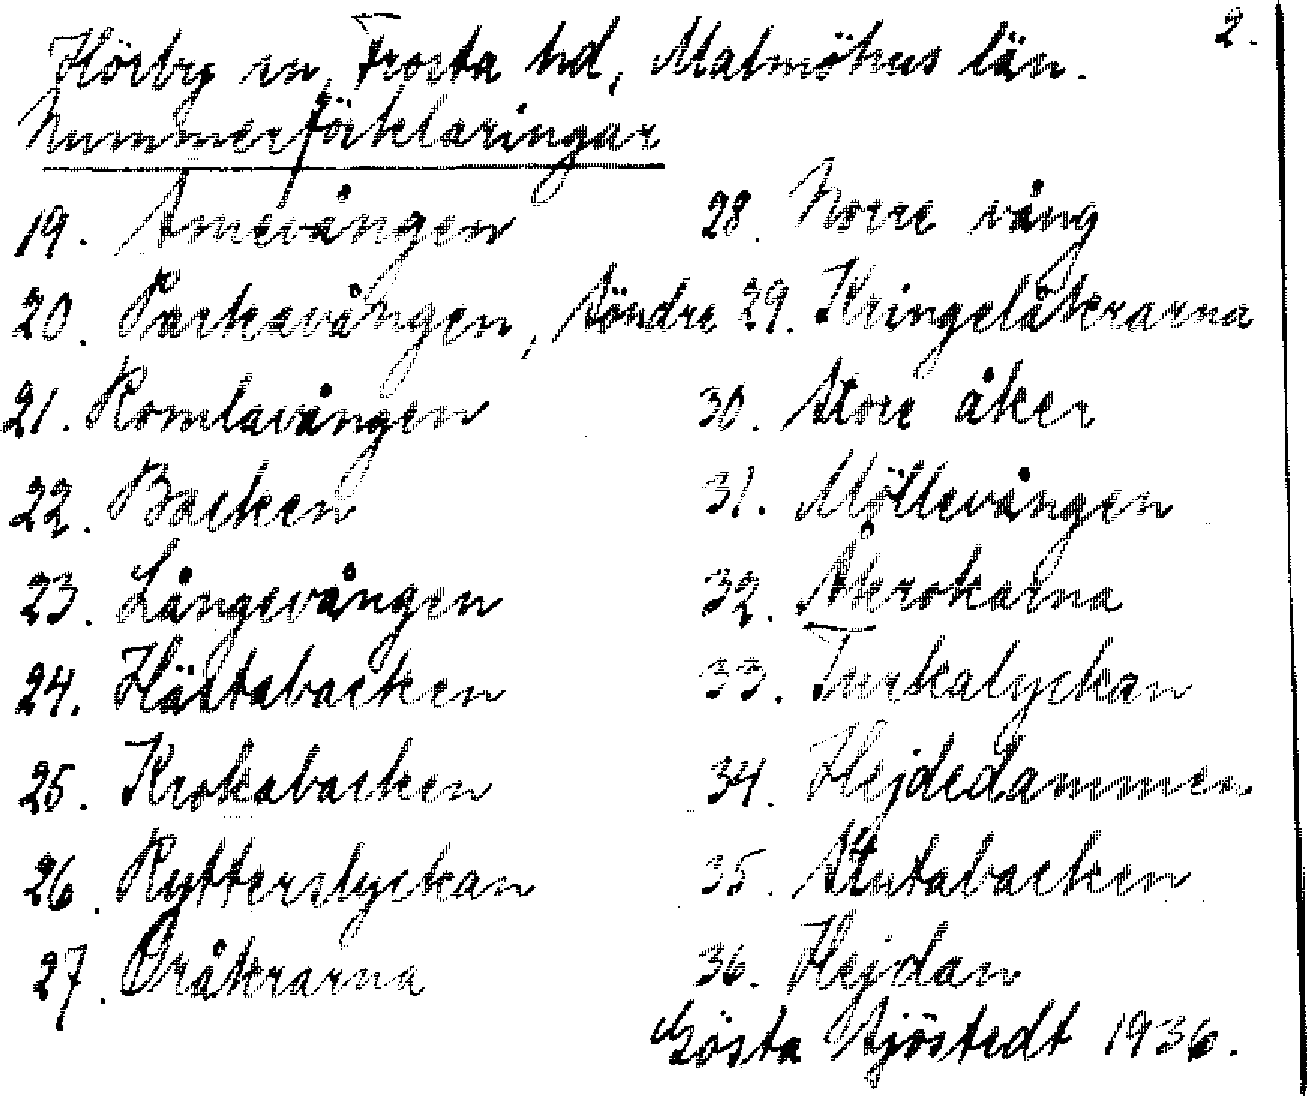 2.
Hörby sn, Frosta hd, Malmöhus län.
Nummerförklaringar
19. Amevången
20. Parkavången, Söndre
21. Romlavången
22. Backen
23. Långevången
24. Hästabacken
25. Krokabacken
26. Rytterslyckan
27. Oråkrarna
28. Norre vång
29. Kringelåkrarna
30. Store åker
31. Möllevången
32. Åkrokarna
33. Turkalyckan
34. Hejdedammen
35. Stutabacken
36. Hejdan
Gösta Sjöstedt 1936.